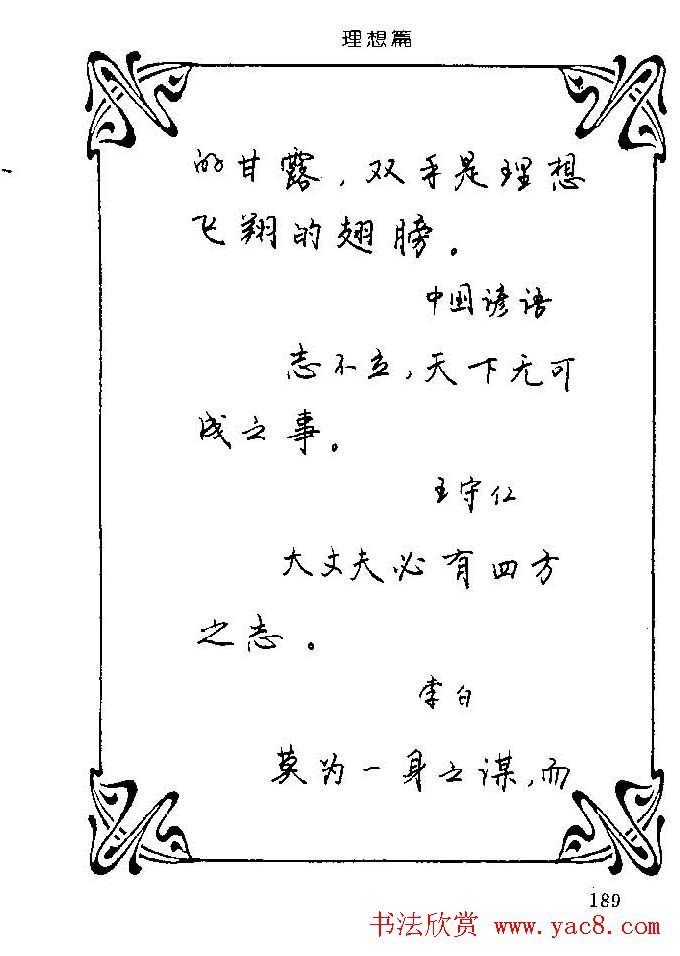 理想篇
的甘露，双手是理想
飞翔的翅膀。
中国谚语
志不立，天下无可
成之事。
王守仁
大丈夫必有四方
之志。
李白
莫为一身之谋，而
189
书法欣赏 www.yac8.com